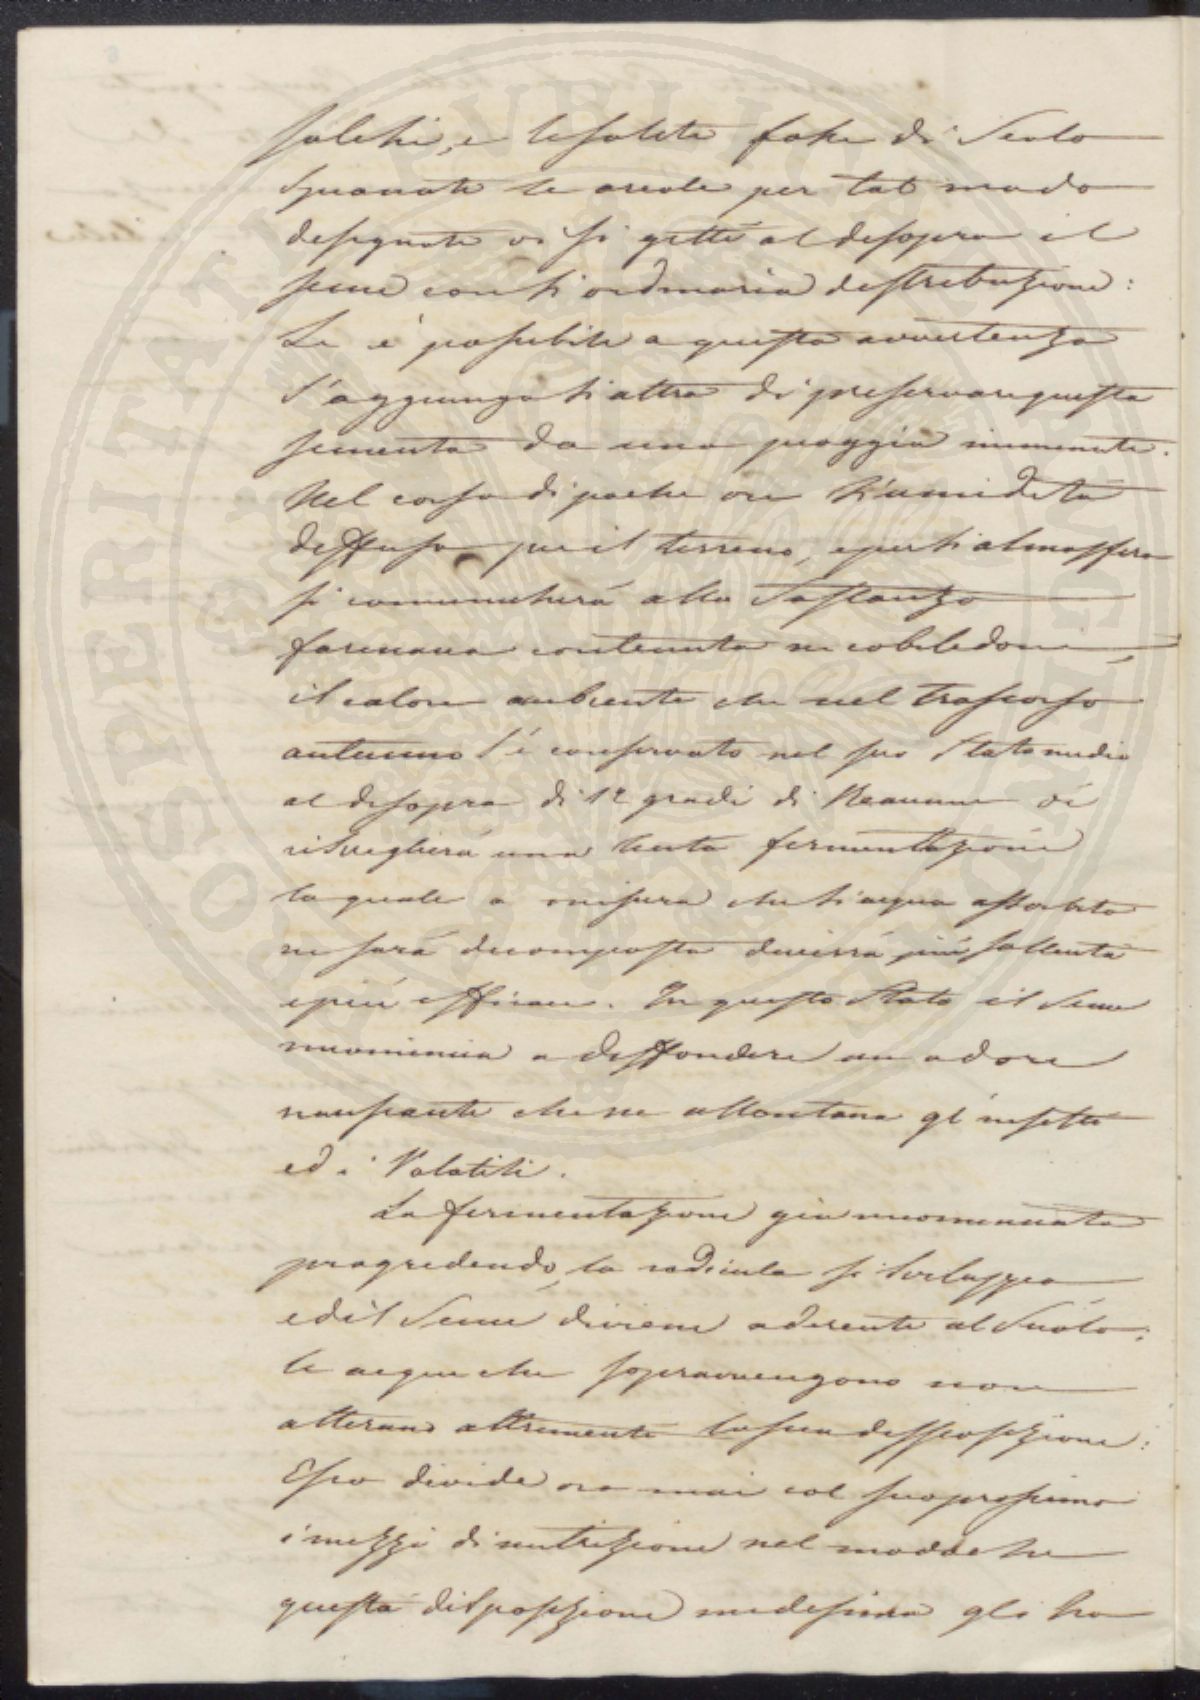 solchi, e le solite fosse di Scolo
Spianate le areole per tal modo
desegnate vi si getti al desopra il
seme con la ordinaria destrebuzione:
Se è possibile a questa avvertenza
s'aggiunga l'altra di preservare questa
sementa da una pioggia imminente.
Nel corso di poche ore l'umidità
deffusa per il terreno, e per l'atmosfera
si comunicherà alla Sostanza
farinacea contenuta ne cotiledoni,
il calore ambiente che nel trascorso
autunno s'è conservato nel suo Stato medio
al desopra di 12 gradi di Reaumur vi
risveglierà una lenta fermentazione
la quale a misura che l'acqua assorbita
ne sarà decomposta diverrà più sollecita
e più efficace. In questo Stato il Seme
incomincia a deffondere un odore
nauseante che ne allontana gl'insetti
ed i Volatili.
La fermentazione già incominciata
progredendo, la radicula si sviluppa
ed il Seme diviene aderente al Suolo;
le acque che sopravvengono non
alterano altrimenti la sua desposizione:
Esso divide ora mai col suo prossimo
i mezzi di nutrizione nel modo che
questa disposizione medesima gli ha